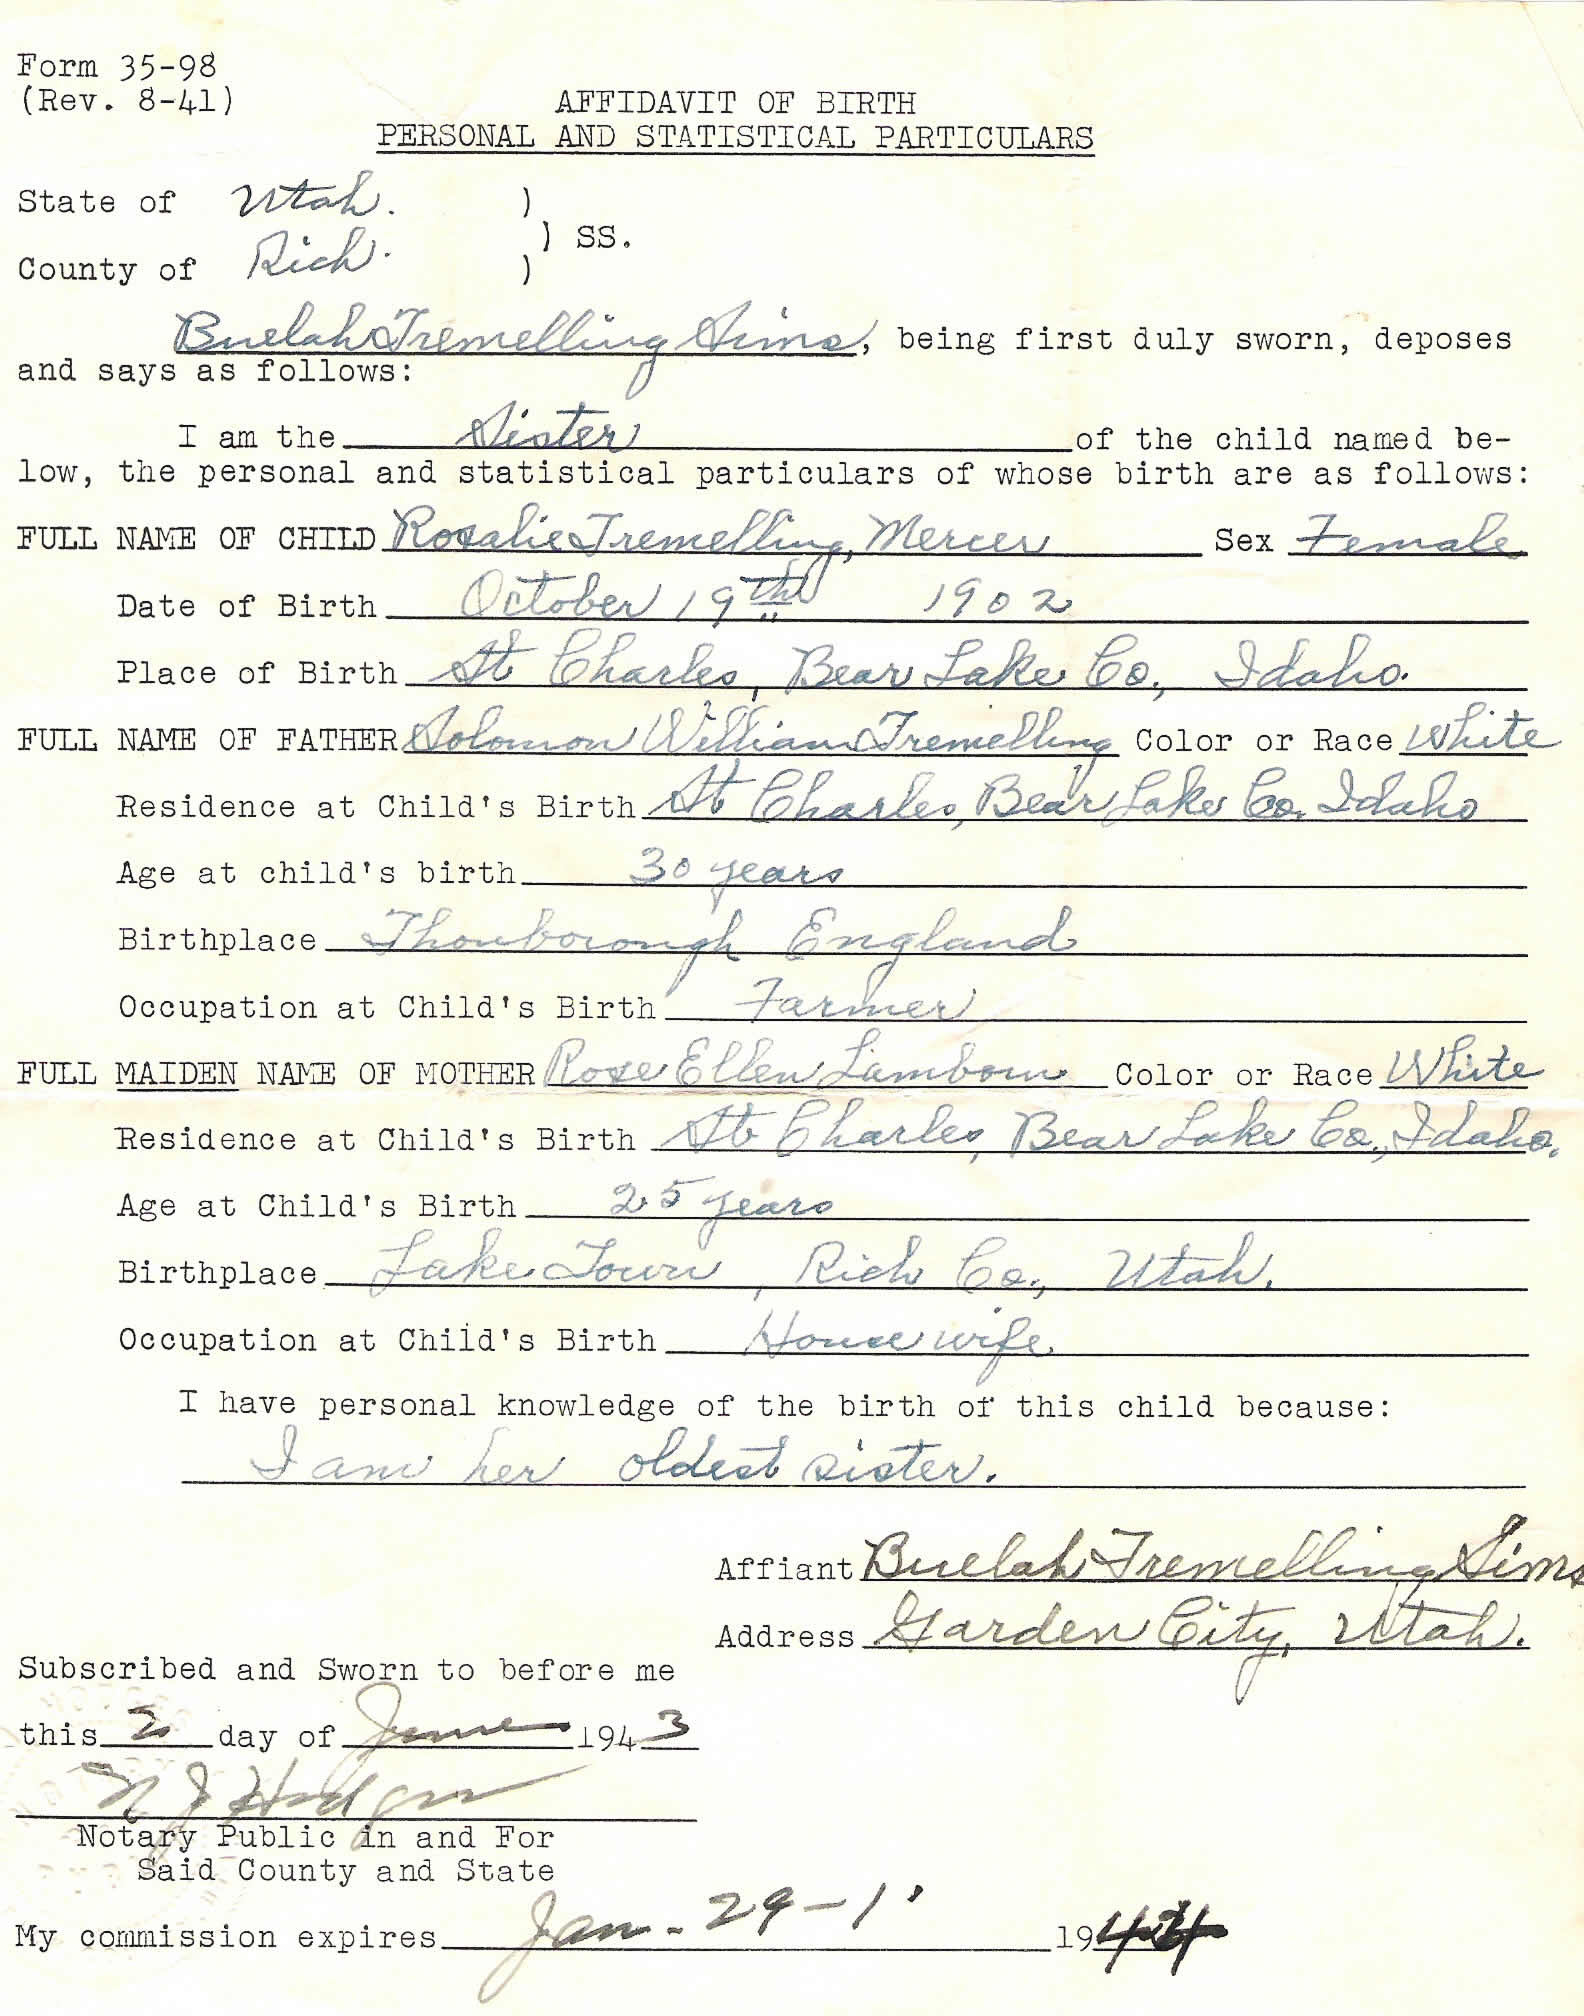 Form 35-98
(Rev. 8-41)
AFFIDAVIT OF BIRTH
PERSONAL AND STATISTICAL PARTICULARS
State of Utah. )
) SS.
County of Rich. )
Buelah Tremelling Sims, being first duly sworn, deposes
and says as follows:
I am the Sister of the child named be-
low, the personal and statistical particulars of whose birth are as follows:
FULL NAME OF CHILD Rosalie Tremelling, Mercer Sex Female
Date of Birth October 19th 1902
Place of Birth St Charles, Bear Lake Co., Idaho.
FULL NAME OF FATHER Solomon William Tremelling Color or Race White
Residence at Child's Birth St Charles, Bear Lake Co. Idaho
Age at child's birth 30 years
Birthplace England
Occupation at Child's Birth Farmer
FULL MAIDEN NAME OF MOTHER Rose Ellen Lamborn Color or Race White
Residence at Child's Birth St Charles, Bear Lake Co., Idaho.
Age at Child's Birth 25 years
Birthplace Lake Town, Rich Co., Utah.
Occupation at Chiid's Birth House wife
I have personal knowledge of the birth of this child because:
I am her oldest sister.
Affiant Buelah Tremelling Sims
Address Garden City, Utah.
Subscribed and Sworn to before me
this 2 day of June 1943
Notary Public in and For
Said County and State
My commission expires Jan - 29 - 19